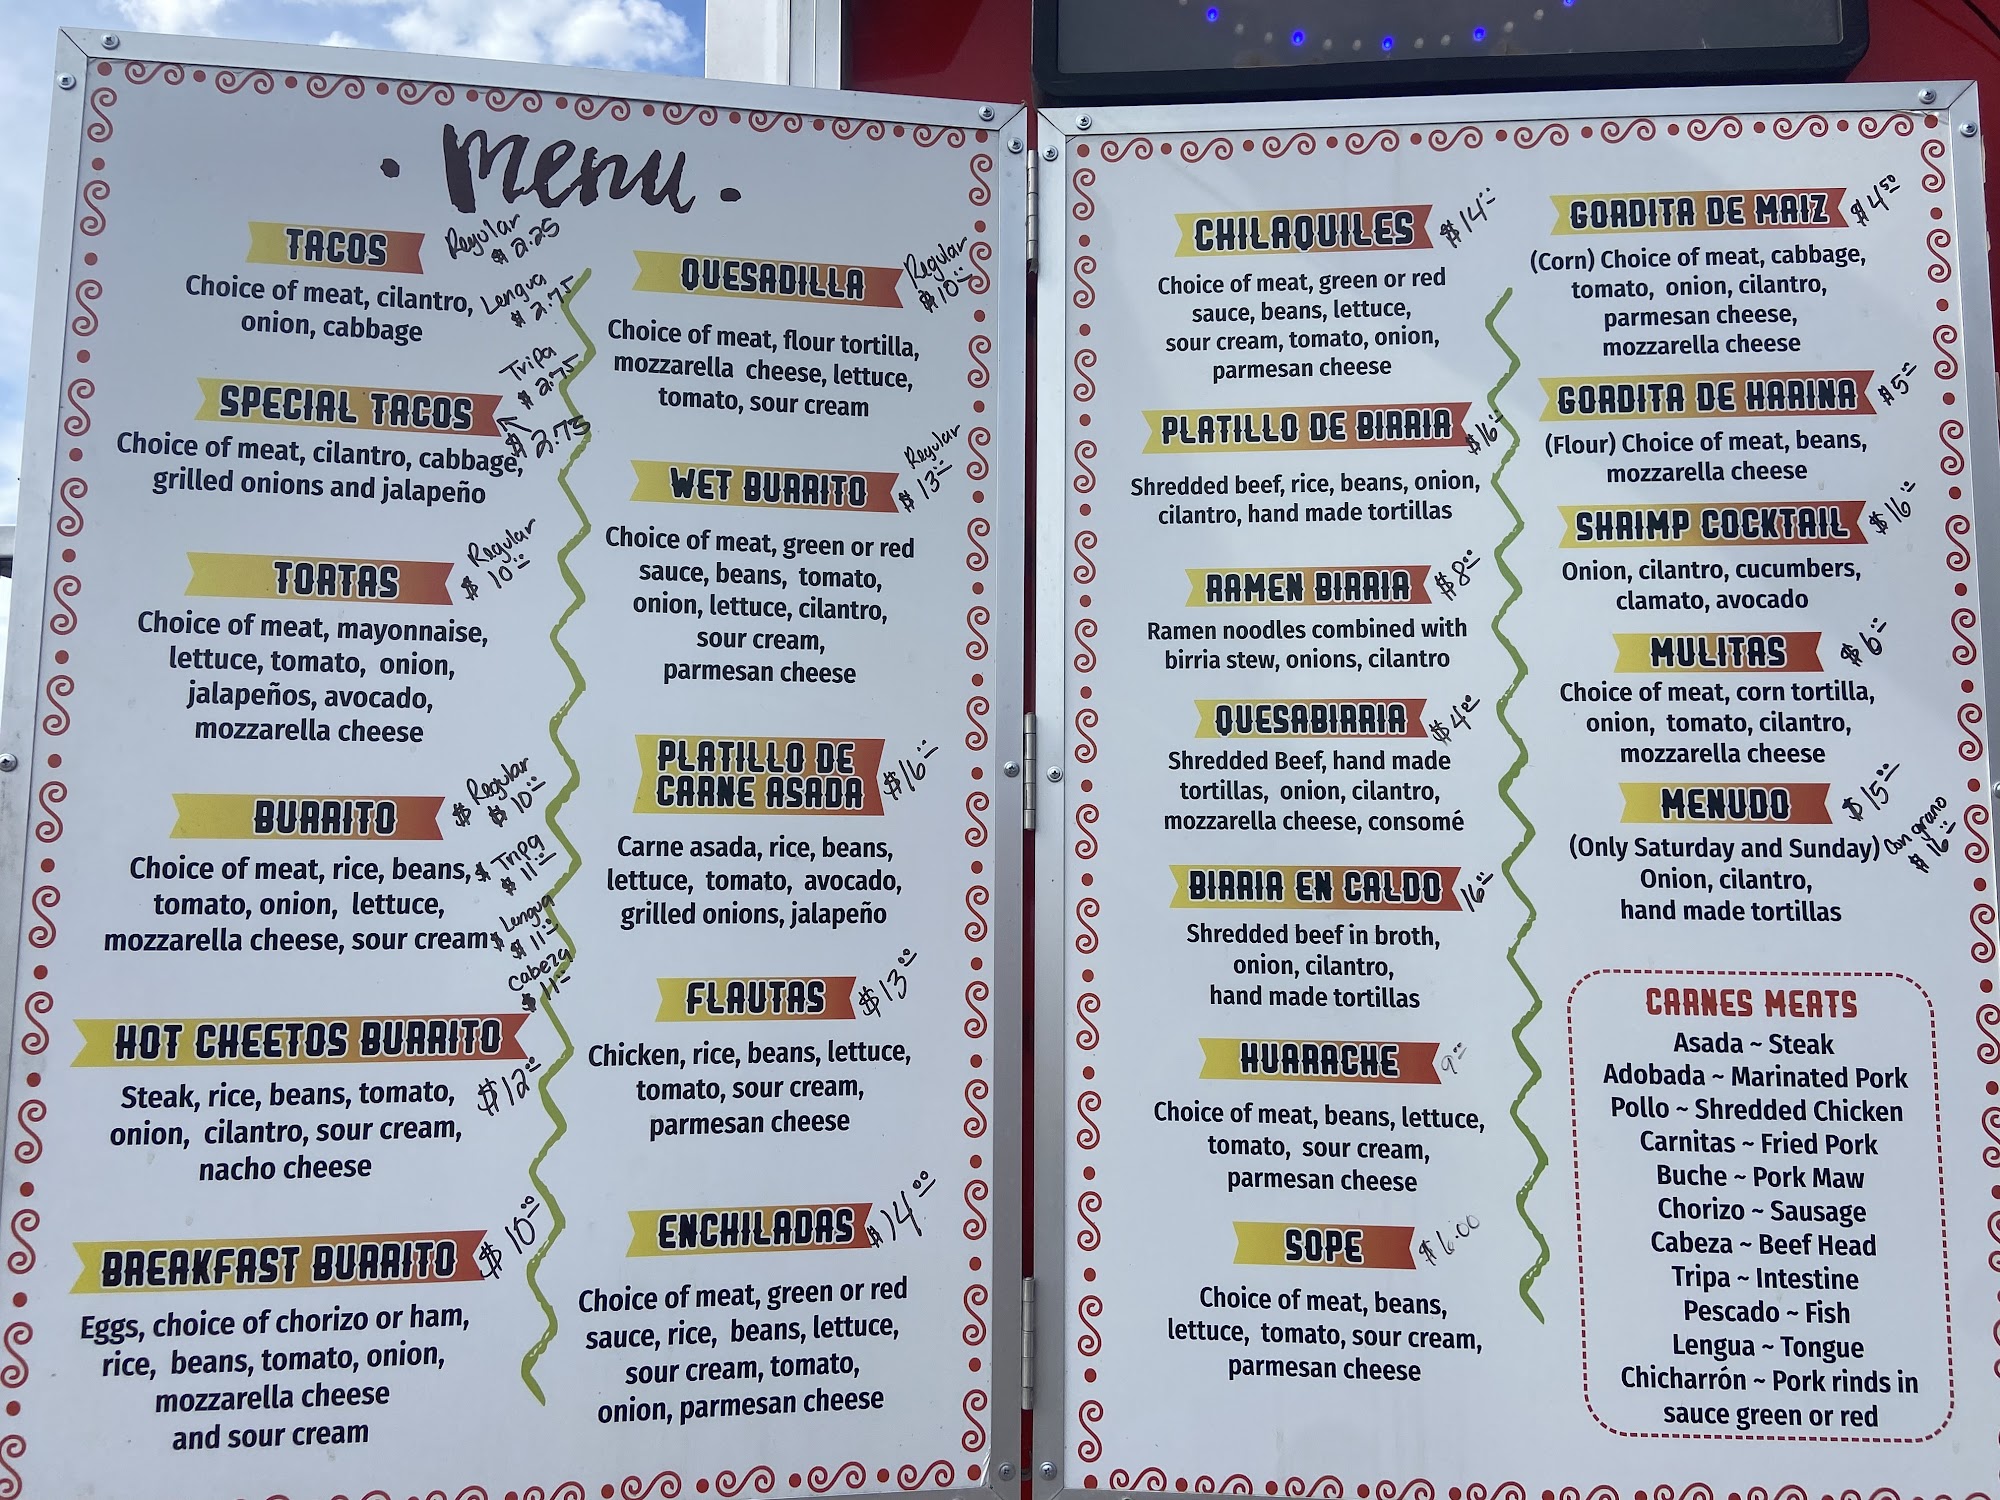 . Menu .
TACOS
Regular
$ 2.25
Choice of meat, cilantro,
onion, cabbage
Lengua
$ 2.75
Tripa
$ 2.75
SPECIAL TACOS
$ 2.75
Choice of meat, cilantro, cabbage,
grilled onions and jalapeño
TORTAS
Regular
$ 10.00
Choice of meat, mayonnaise,
lettuce, tomato, onion,
jalapeños, avocado,
mozzarella cheese
BURRITO
$ Regular
$ 10.00
Choice of meat, rice, beans,
tomato, onion, lettuce,
mozzarella cheese, sour cream
$ Tripa
$ 11.00
$ Lengua
$ 11.00
Cabeza
$ 11.00
HOT CHEETOS BURRITO
$12.00
Steak, rice, beans, tomato,
onion, cilantro, sour cream,
nacho cheese
BREAKFAST BURRITO
$ 10.00
Eggs, choice of chorizo or ham,
rice, beans, tomato, onion,
mozzarella cheese
and sour cream
QUESADILLA
Regular
$10.00
Choice of meat, flour tortilla,
mozzarella cheese, lettuce,
tomato, sour cream
WET BURRITO
Regular
$ 13.00
Choice of meat, green or red
sauce, beans, tomato,
onion, lettuce, cilantro,
sour cream,
parmesan cheese
PLATILLO DE
CARNE ASADA
$16.00
Carne asada, rice, beans,
lettuce, tomato, avocado,
grilled onions, jalapeño
FLAUTAS
$13.00
Chicken, rice, beans, lettuce,
tomato, sour cream,
parmesan cheese
ENCHILADAS
$14.00
Choice of meat, green or red
sauce, rice, beans, lettuce,
sour cream, tomato,
onion, parmesan cheese
CHILAQUILES
$14.00
Choice of meat, green or red
sauce, beans, lettuce,
sour cream, tomato, onion,
parmesan cheese
PLATILLO DE BIRRIA
$16.00
Shredded beef, rice, beans, onion,
cilantro, hand made tortillas
RAMEN BIRRIA
$8.00
Ramen noodles combined with
birria stew, onions, cilantro
QUESABIRRIA
$4.00
Shredded Beef, hand made
tortillas, onion, cilantro,
mozzarella cheese, consomé
BIRRIA EN CALDO
16.00
Shredded beef in broth,
onion, cilantro,
hand made tortillas
HUARACHE
9.00
Choice of meat, beans, lettuce,
tomato, sour cream,
parmesan cheese
SOPE
$6.00
Choice of meat, beans,
lettuce, tomato, sour cream,
parmesan cheese
GORDITA DE MAIZ
$4.50
(Corn) Choice of meat, cabbage,
tomato, onion, cilantro,
parmesan cheese,
mozzarella cheese
GORDITA DE HARINA
$5.00
(Flour) Choice of meat, beans,
mozzarella cheese
SHRIMP COCKTAIL
$16.00
Onion, cilantro, cucumbers,
clamato, avocado
MULITAS
$6.00
Choice of meat, corn tortilla,
onion, tomato, cilantro,
mozzarella cheese
MENUDO
$15.00
(Only Saturday and Sunday)
Con grano
$ 16.00
Onion, cilantro,
hand made tortillas
CARNES MEATS
Asada ~ Steak
Adobada ~ Marinated Pork
Pollo ~ Shredded Chicken
Carnitas ~ Fried Pork
Buche ~ Pork Maw
Chorizo ~ Sausage
Cabeza ~ Beef Head
Tripa ~ Intestine
Pescado ~ Fish
Lengua ~ Tongue
Chicharrón ~ Pork rinds in
sauce green or red